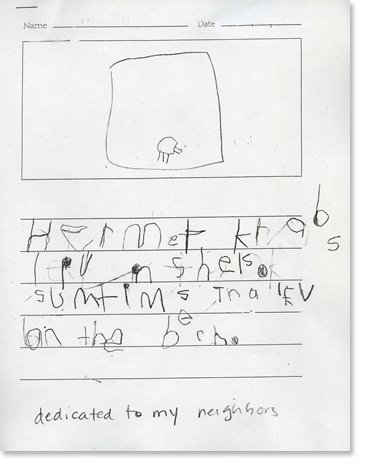 Name Date
HErmet krabs
liv in shels.
sumtims Tha liv
on the bech.
dedicated to my neighbors